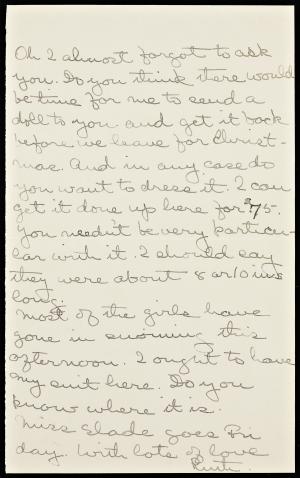 Oh I almost forgot to ask
you. Do you think there would
be time for me to send a
doll to you and get it back
before we leave for Christ-
mas. And in any case do
you want to dress it. I can
get it done up here for $.75.
You needn't be very particu-
lar with it. I should say
they were about 8 or 10 ins
long.
Most of the girls have
gone in swimming this
afternoon. I ought to have
my suit here. Do you
know where it is.
Miss Slade goes Fri
day. With lots of love
Ruth.